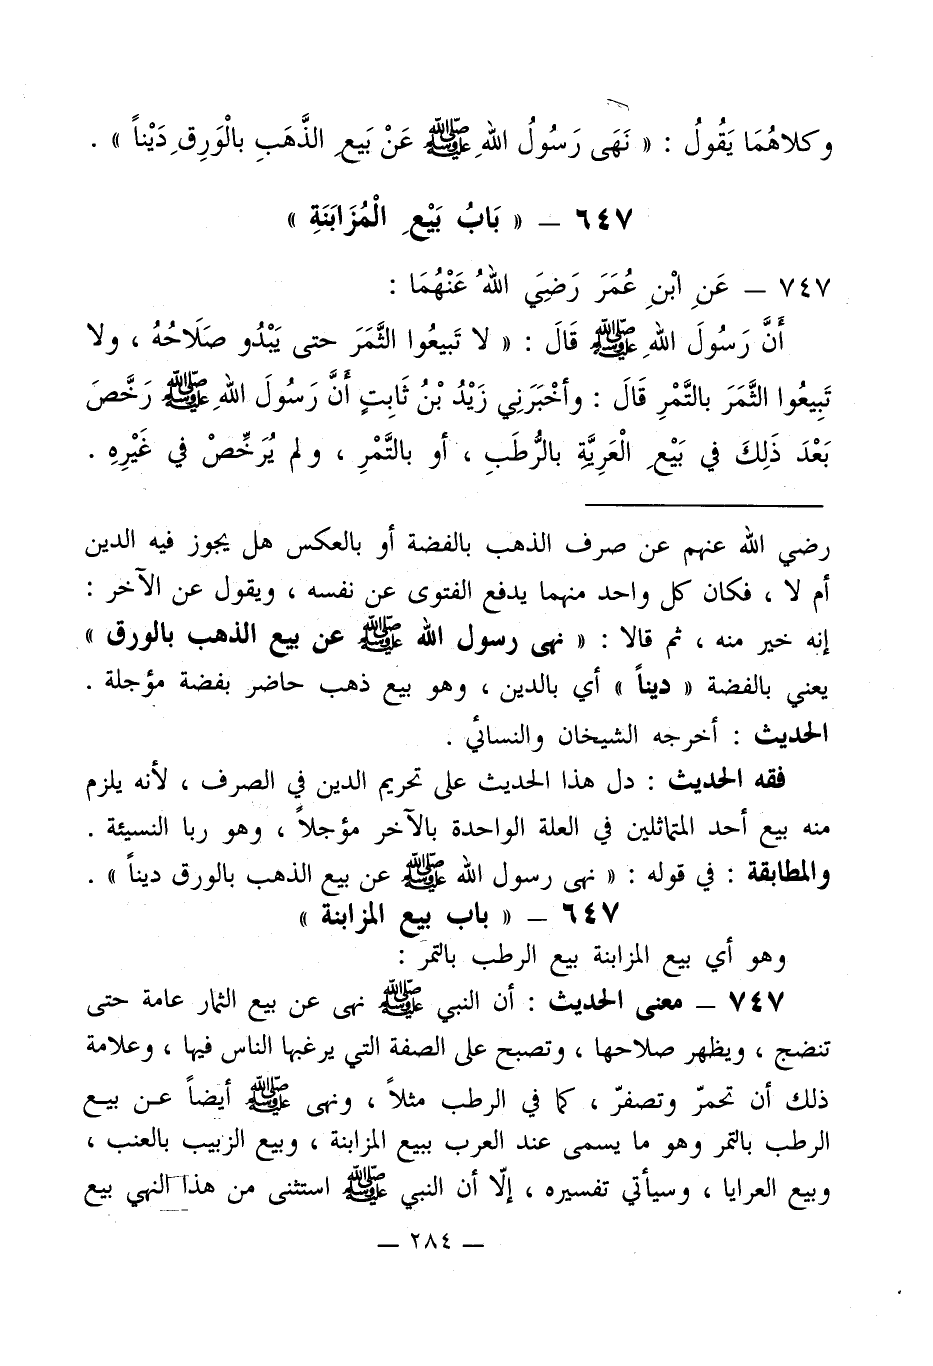 وكلاهُمَا يَقُولُ : « نَهَى رَسُولُ اللهِ ﷺ عَنْ بَيعِ الذَّهَبِ بالْوَرِقِ دَيْناً » .
٦٤٧ – « بَابُ بَيْعِ الْمُزَابَنَةِ »
٧٤٧ – عَنِ ابْنِ عُمَرَ رَضِيَ اللهُ عَنْهُمَا :
أَنَّ رَسُولَ اللهِ ﷺ قَالَ : « لا تَبيعُوا الثَّمَرَ حتى يَبْدُو صَلَاحُهُ ، ولا
تَبِيعُوا الثَّمَرَ بالتَّمْرِ قَالَ : وأخْبَرَنِي زَيْدُ بْنُ ثَابِتٍ أَنَّ رَسُولَ اللهِ ﷺ رَخَّصَ
بَعْدَ ذَلِكَ في بَيْعِ الْعَرِيَّةِ بالرُّطَبِ ، أو بالتَّمْرِ ، ولم يُرَخِّصْ في غَيْرِهِ .
رضي الله عنهم عن صرف الذهب بالفضة أو بالعكس هل يجوز فيه الدين
أم لا ، فكان كل واحد منهما يدفع الفتوى عن نفسه ، ويقول عن الآخر :
إنه خير منه ، ثم قالا : « نهى رسول الله ﷺ عن بيع الذهب بالورق »
يعني بالفضة « ديناً » أي بالدين ، وهو بيع ذهب حاضر بفضة مؤجلة .
الحديث : أخرجه الشيخان والنسائي .
فقه الحديث : دل هذا الحديث على تحريم الدين في الصرف ، لأنه يلزم
منه بيع أحد المتماثلين في العلة الواحدة بالآخر مؤجلاً ، وهو ربا النسيئة .
والمطابقة : في قوله : « نهى رسول الله ﷺ عن بيع الذهب بالورق ديناً » .
٦٤٧ – « باب بيع المزابنة »
وهو أي بيع المزابنة بيع الرطب بالتمر :
٧٤٧ – معنى الحديث : أن النبي ﷺ نهى عن بيع الثمار عامة حتى
تنضج ، ويظهر صلاحها ، وتصبح على الصفة التي يرغبها الناس فيها ، وعلامة
ذلك أن تحمرّ وتصفرّ ، كما في الرطب مثلاً ، ونهى ﷺ أيضاً عن بيع
الرطب بالتمر وهو ما يسمى عند العرب ببيع المزابنة ، وبيع الزبيب بالعنب ،
وبيع العرايا ، وسيأتي تفسيره ، إلّا أن النبي ﷺ استثنى من هذا النهي بيع
– ٢٨٤ –